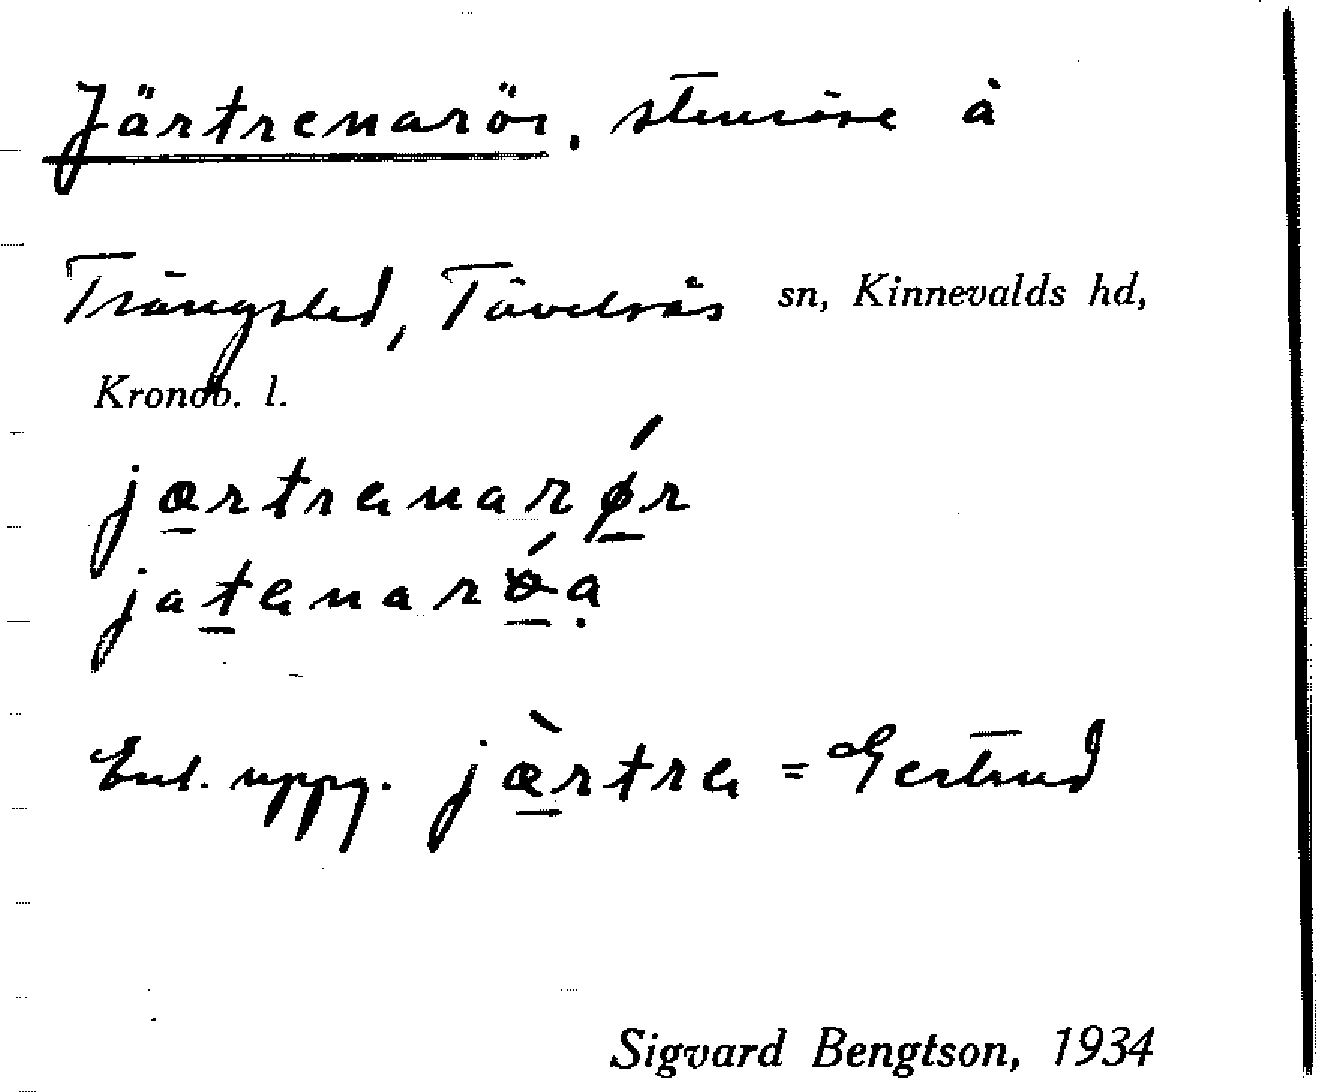 Järtrenarör, stenröse å
Trängsled, Tävelsås sn, Kinnevalds hd,
Kronob. l.
jærtrenarǿr
jatenarǿa
Enl. uppg. jærtre = Gertrud
Sigvard Bengtson, 1934